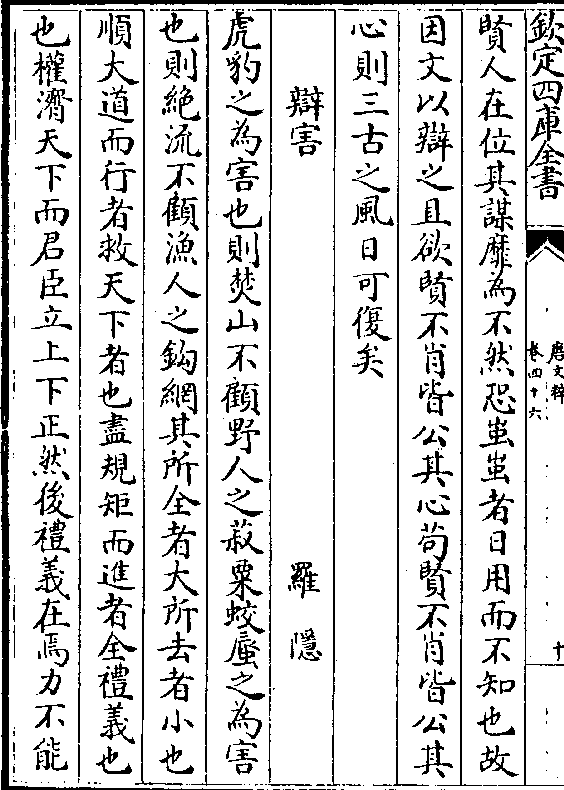 欽定四庫全書
唐文粹
卷四十六
十
賢人在位其謀靡為不然恐蚩蚩者日用而不知也故
因文以辯之且欲賢不肖皆公其心苟賢不肖皆公其
心則三古之風日可復矣
辯害 羅隱
虎豹之為害也則焚山不顧野人之菽粟蛟蜃之為害
也則絕流不顧漁人之鈎網其所全者大所去者小也
順大道而行者救天下者也盡規矩而進者全禮義也
也權濟天下而君臣立上下正然後禮義在焉力不能